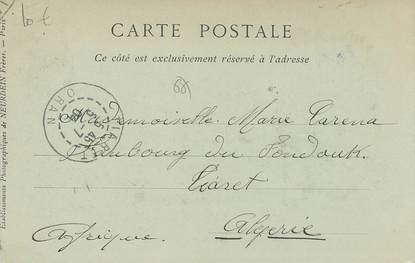 CARTE POSTALE
Ce côté est exclusivement réservé à l'adresse
Mademoiselle Marie Carena
Faubourg du Fondouk
Tiaret
Algérie
Afrique.
TIARET
ORAN
Etablissements Photographiques de NEURDEIN Frères. — Paris